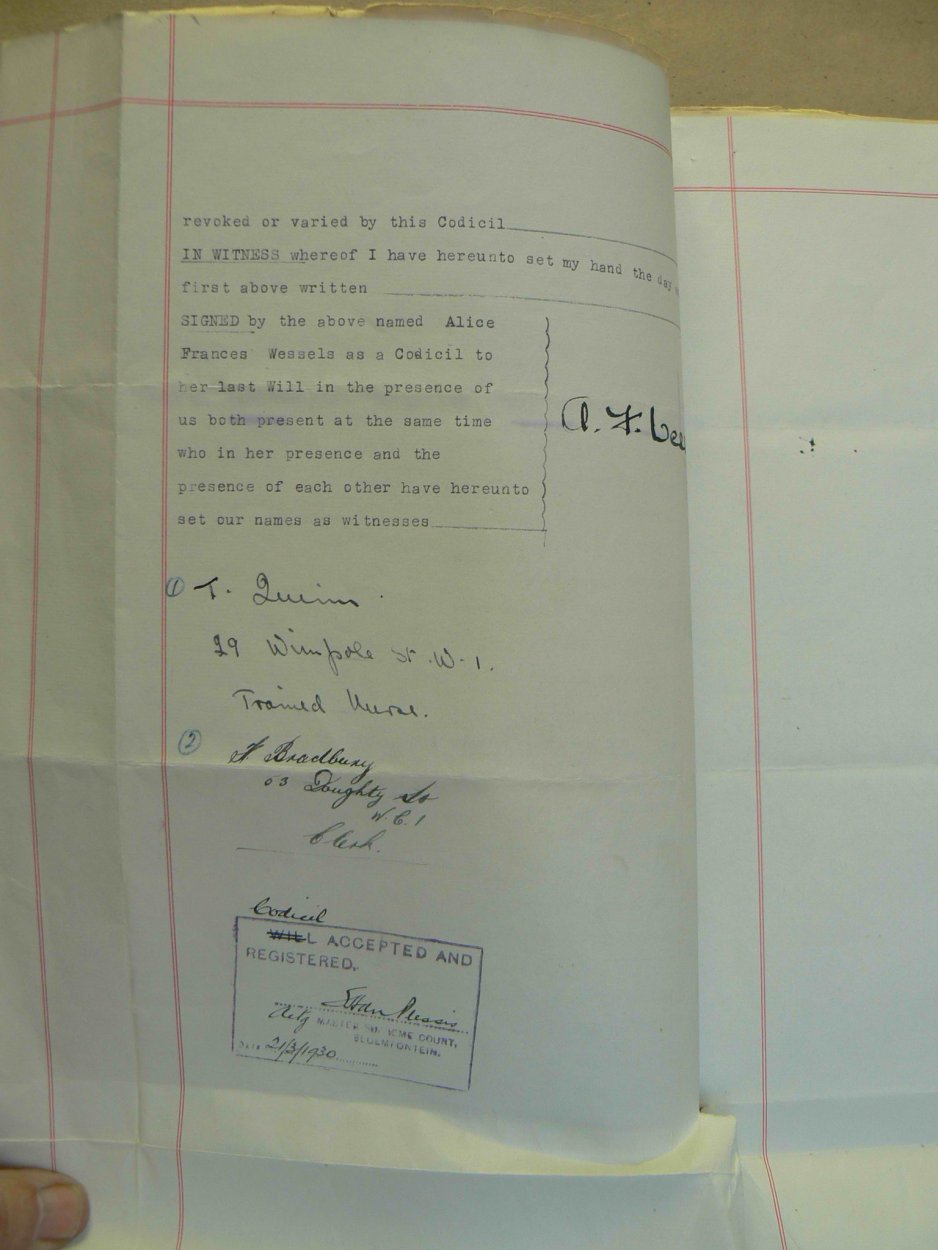 revoked or varied by this Codicil
IN WITNESS whereof I have hereunto set my hand the day
first above written
SIGNED by the above named Alice
Frances Wessels as a Codicil to
her last Will in the presence of
us both present at the same time
who in her presence and the
presence of each other have hereunto
set our names as witnesses
A. F. Wes
① T. Quinn.
29 Wimpole St. W-1.
Trained Nurse.
② Bradbury
Doughty St
W.C.1
Clerk.
Codicil
WILL ACCEPTED AND
REGISTERED.
Actg MASTER SUPREME COURT,
BLOEMFONTEIN.
DATE 21/3/1930